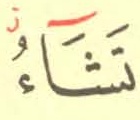 تَشَآءُ
ز